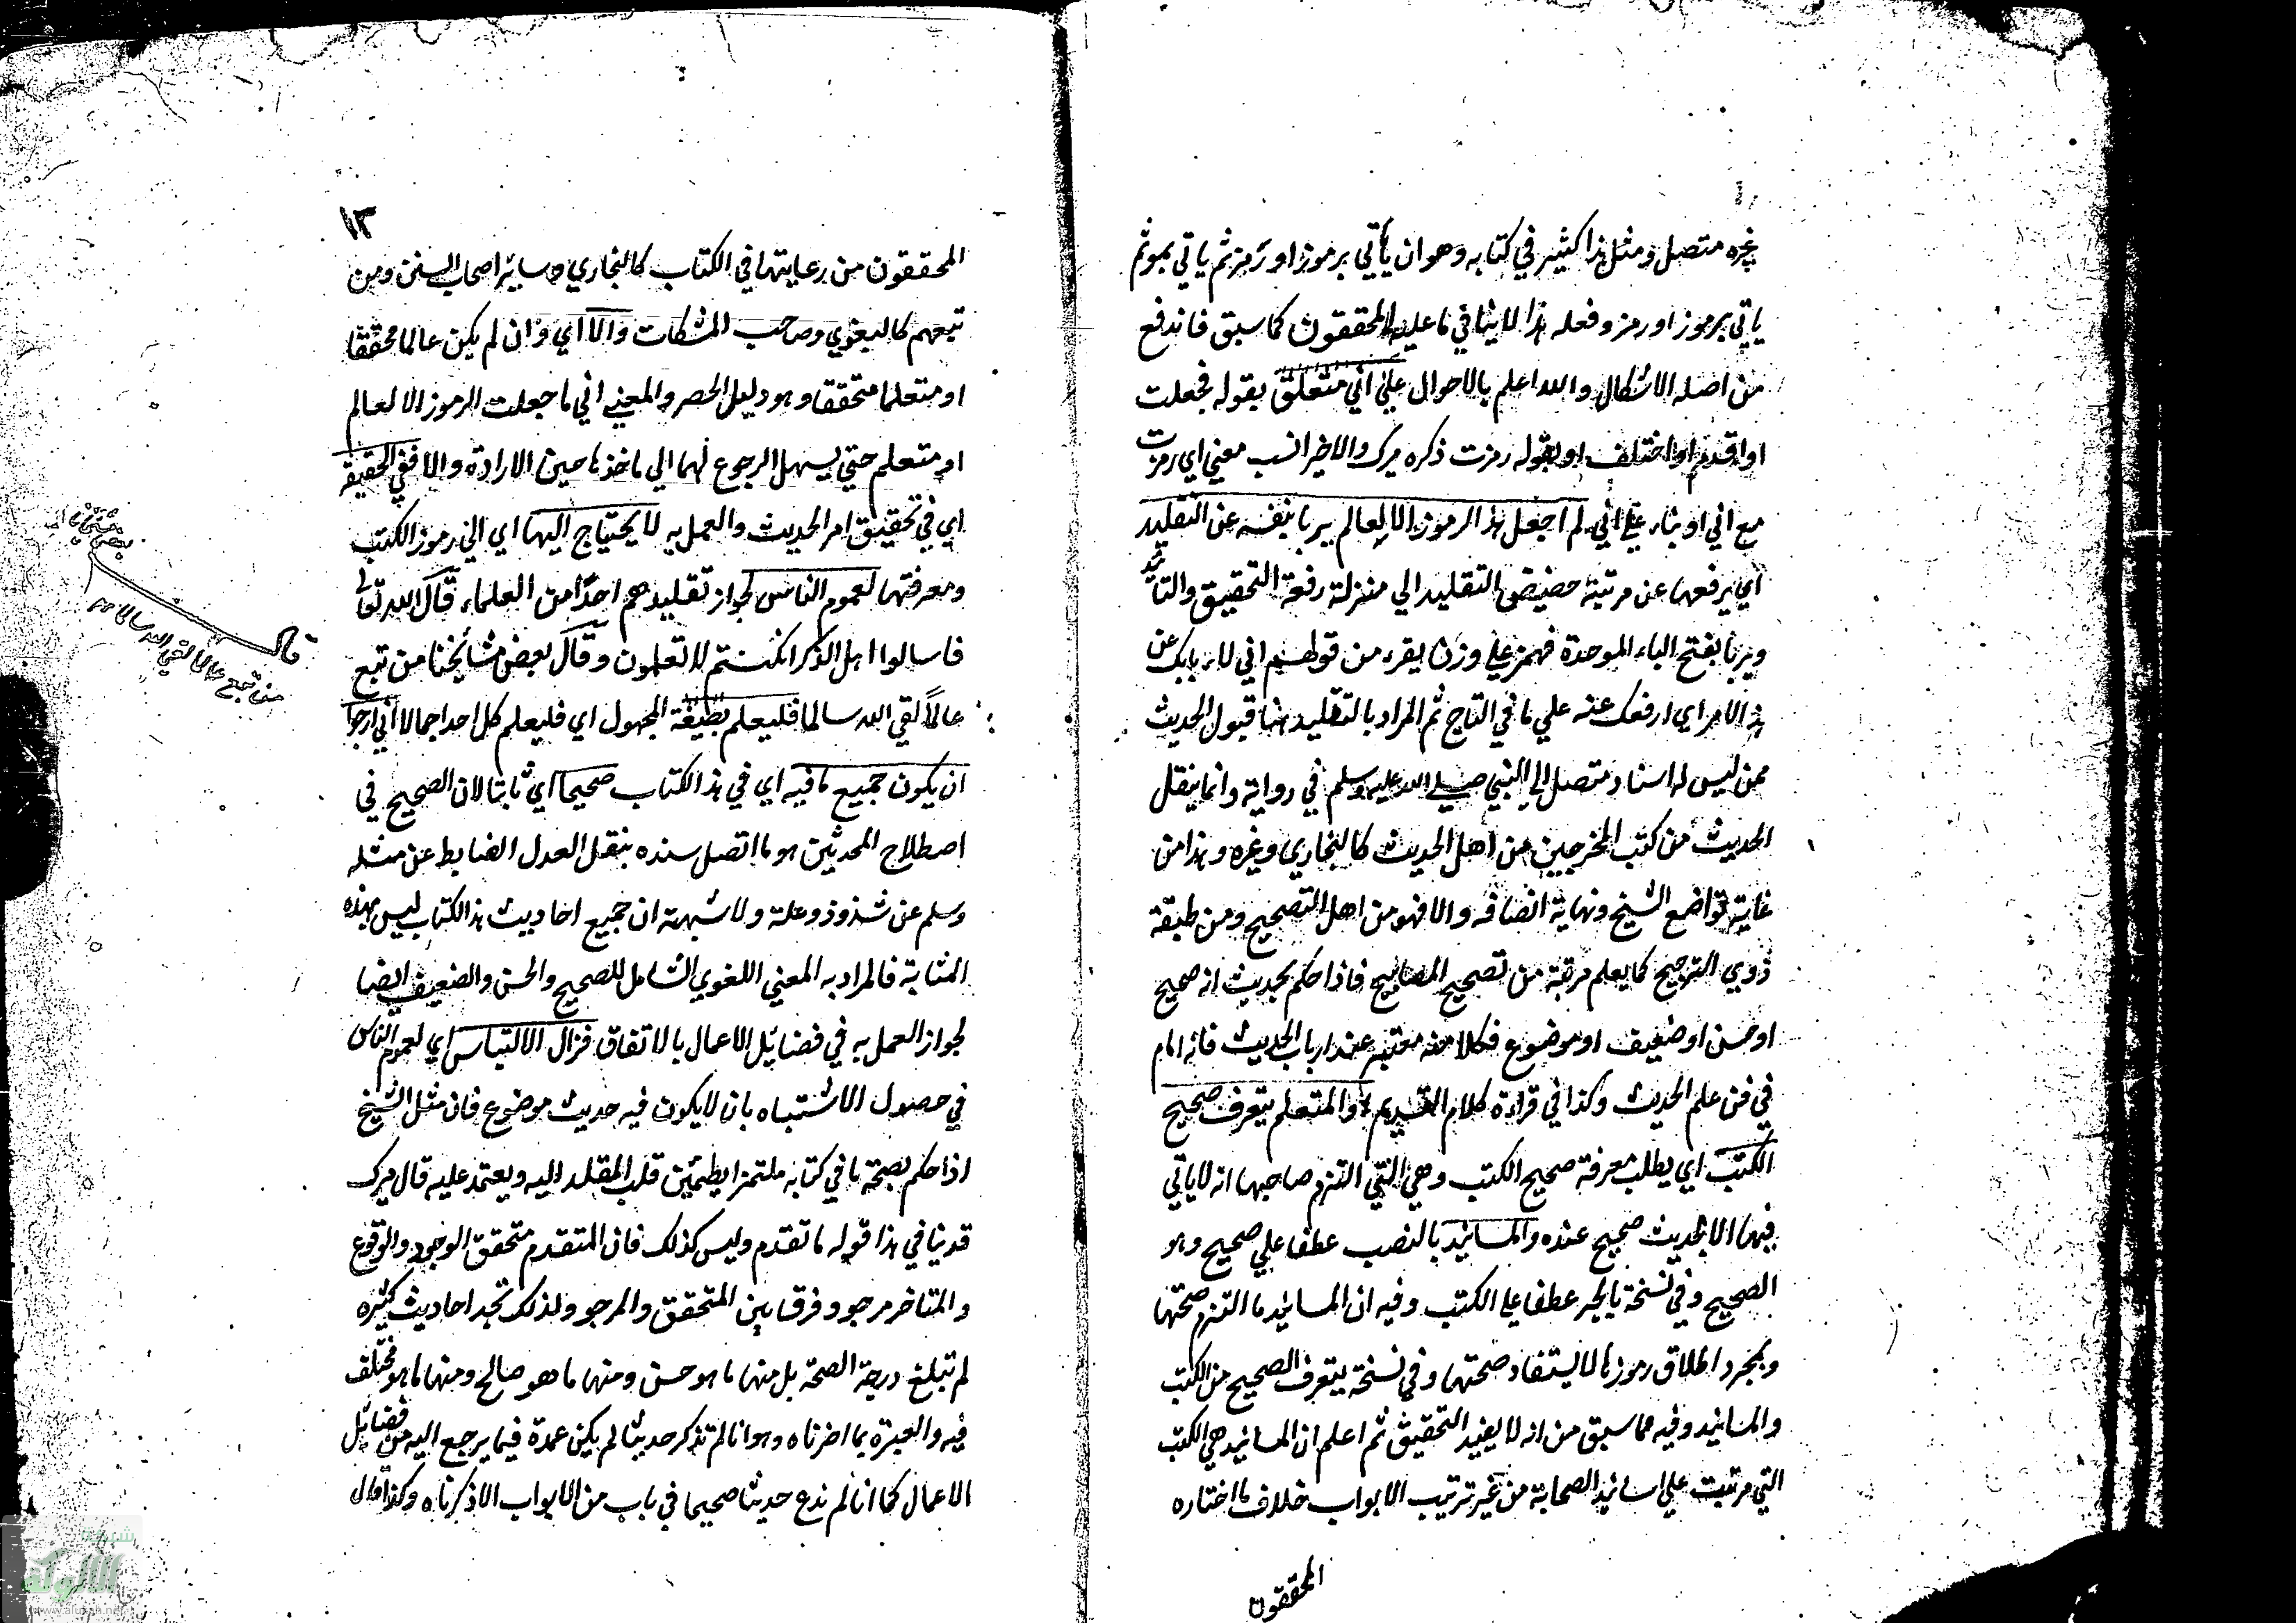 غيره متصل ومثل هذا كثير في كتابه وهو ان يأتي برموز او رمز ثم ياتي بموثم
ياتي برموز او رمز وفعله هذا لا ينافي ما عليه المحققون كما سبق فاندفع
من اصله الاشكال والله اعلم بالاحوال علي اني متعلق بقوله فجعلت
او اقدم او اختلف او بقوله رمزت ذكره ميرك والاخير انسب معني اي رمزت
مع اني او بناء علي اني لم اجعل هذا الرموز الا لعالم يربا بنفسه عن التقليد
اي يرفعها عن مرتبة حضيض التقليد الي منزلة رفعة التحقيق والتائيد
ويربا بفتح الباء الموحدة فهمز علي وزن يقرء من قولهم اني لاربابك عن
هذا الامر اي ارفعك عنه علي ما في التاج ثم المراد بالتقليد هنا قبول الحديث
ممن ليس له اسناد متصل الي النبي صلي الله عليه وسلم في رواية وانما ينقل
الحديث من كتب المخرجين من اهل الحديث كالبخاري وغيره وهذا من
غاية تواضع الشيخ ونهاية انصافه والا فهو من اهل التصحيح ومن طبقة
ذوي الترجيح كما يعلم مرتبة من تصحيح المصابيح فاذا حكم بحديث انه صحيح
او حسن او ضعيف او موضوع فكلامه معتبر عند ارباب الحديث فانه امام
في فن علم الحديث وكذا في قراءة كلام القديم او المتعلم يتعرف صحيح
الكتب اي يطلب معرفة صحيح الكتب وهي التي التزم صاحبها انه لا ياتي
فيها الا بحديث صحيح عنده والمسانيد بالنصب عطفا علي صحيح وهو
الصحيح وفي نسخة بالجر عطفا علي الكتب وفيه ان المسانيد ما التزم صحتها
وبمجرد اطلاق رموزها لا يستفاد صحتها وفي نسخة يتعرف الصحيح من الكتب
والمسانيد وفيه مما سبق من انه لا يفيد التحقيق ثم اعلم ان المسانيد هي الكتب
التي مرتبت علي اسانيد الصحابة من غير ترتيب الابواب خلاف ما اختاره
المحققون
١٣
المحققون من رعايتها في الكتاب كالبخاري وسائر اصحاب السنن ومن
تبعهم كالبغوي وصاحب المشكات والا اي وان لم يكن عالما محققا
او متعلما متحققا وهو دليل الحصر والمعني اني ما جعلت الرموز الا لعالم
او متعلم حتي يسهل الرجوع لهما الي ماخذها حين الارادة والا ففي الحقيقة
اي في تحقيق امر الحديث والعمل به لا يحتياج اليها اي الي رموز الكتب
ومعرفتها لعموم الناس لجواز تقليدهم احدا من العلماء قال الله تعالي
فاسالوا اهل الذكر ان كنتم لا تعلمون وقال بعض مشائخنا من تبع
عالما لقي الله سالما فليعلم بصيغة المجهول اي فليعلم كل احد اجمالا اني ارجوا
ان يكون جميع ما فيه اي في هذا الكتاب صحيحا اي ثابتا لان الصحيح في
اصطلاح المحدثين هو ما اتصل سنده بنقل العدل الضابط عن مثله
وسلم عن شذوذ وعلة ولا شبهة ان جميع احاديث هذا الكتاب ليس بهذه
المثابة فالمراد به المعني اللغوي الشامل للصحيح والحسن والضعيف ايضا
لجواز العمل به في فضائل الاعمال بالاتفاق فزال الالتباس اي لعموم الناس
في حصول الاشتباه بان لا يكون فيه حديث موضوع فان مثل الشيخ
اذا حكم بصحة ما في كتابه ملتمزا يطمئن قلب المقلد اليه ويعتمد عليه قال ميرك
قد ينافي هذا قوله ما تقدم وليس كذلك فان المتقدم متحقق الوجود والوقوع
والمتاخر مرجو وفرق بين المتحقق والمرجو ولذلك تجد احاديث كثيره
لم تبلغ درجة الصحة بل منها ما هو حسن ومنها ما هو صالح ومنها ما هو مختلف
فيه والعبرة بما اخترناه وهو انا لم تذكر حديثا لم يكن عمدة فيما يرجع اليه من فضائل
الاعمال كما انا لم ندع حديثا صحيحا في باب من الابواب الا ذكرناه وكذا قال
قال
من تبع عالما لقي الله سالما